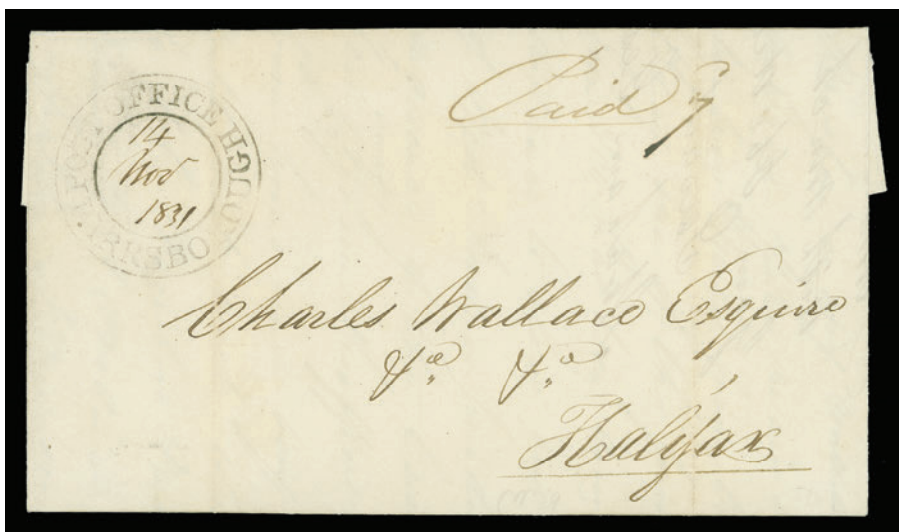 POST OFFICE
PARRSBOROUGH
14
Nov
1831
Paid 7
Charles Wallace Esquire
&c &c
Halifax